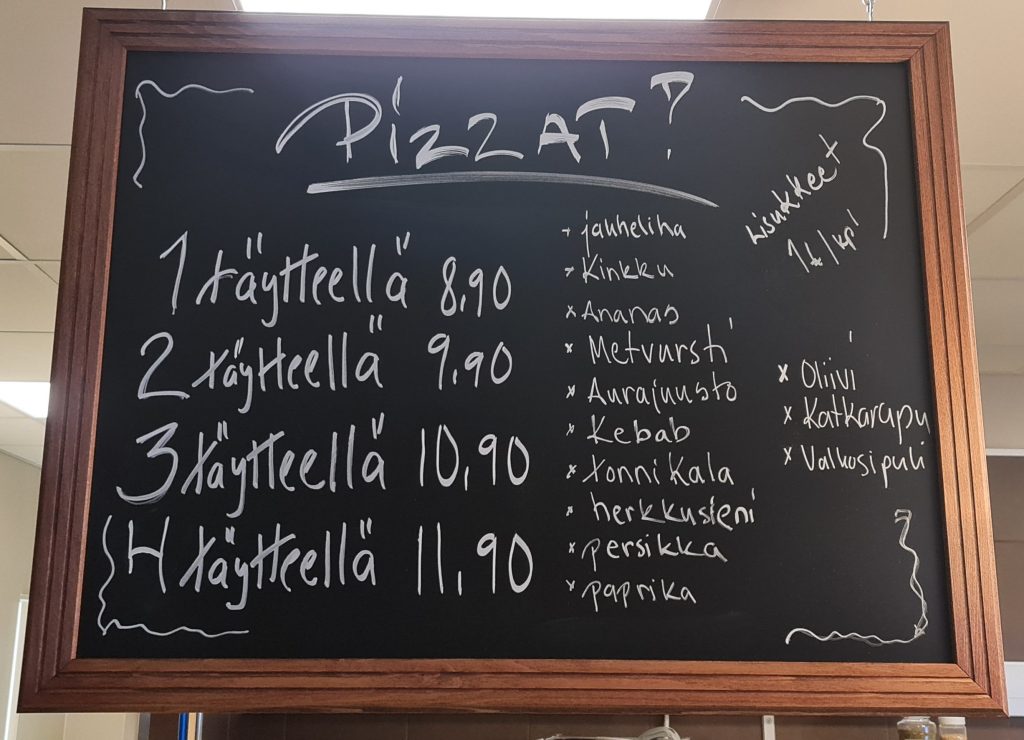 PizzAT?
1 täytteellä 8,90
2 täytteellä 9,90
3 täytteellä 10,90
4 täytteellä 11,90
+ jauheliha
x Kinkku
x Ananas
x Metvursti
x Aurajuusto
x Kebab
x tonnikala
x herkkusieni
x persikka
x paprika
Lisukkeet
1€/kpl
x Oliivi
x Katkarapu
x Valkosipuli